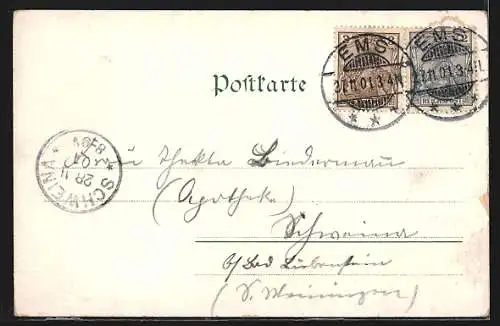 EMS
27.11.01.3-4N.
EMS
27.11.01.3-4N.
Postkarte
SCHWEINA
28 11
01
8-9V
Frau Thekla Biedermann
(Apotheke)
Schweina
b/ Bad Liebenstein
(S. Meiningen)